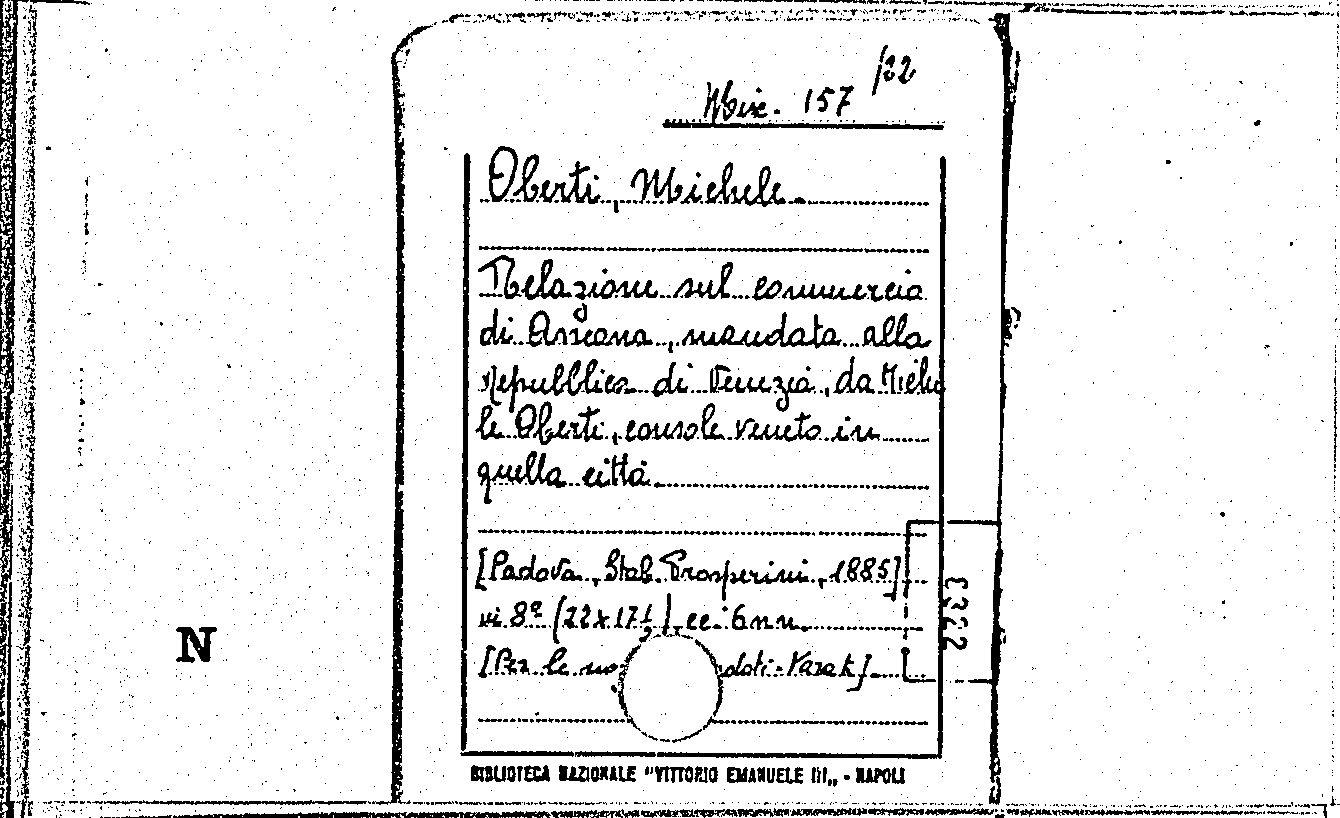 Misc. 157 /22
Oberti, Michele.
Relazione sul commercio
di Ancona, mandata alla
Repubblica di Venezia, da Miche
le Oberti, console veneto in
quella città.
[Padova, Stab. Prosperini, 1885]
in 8º (22x17) cc. 6 nn.
[Per le no doti-Varak]
3322
N
BIBLIOTECA NAZIONALE "VITTORIO EMANUELE III„ - NAPOLI